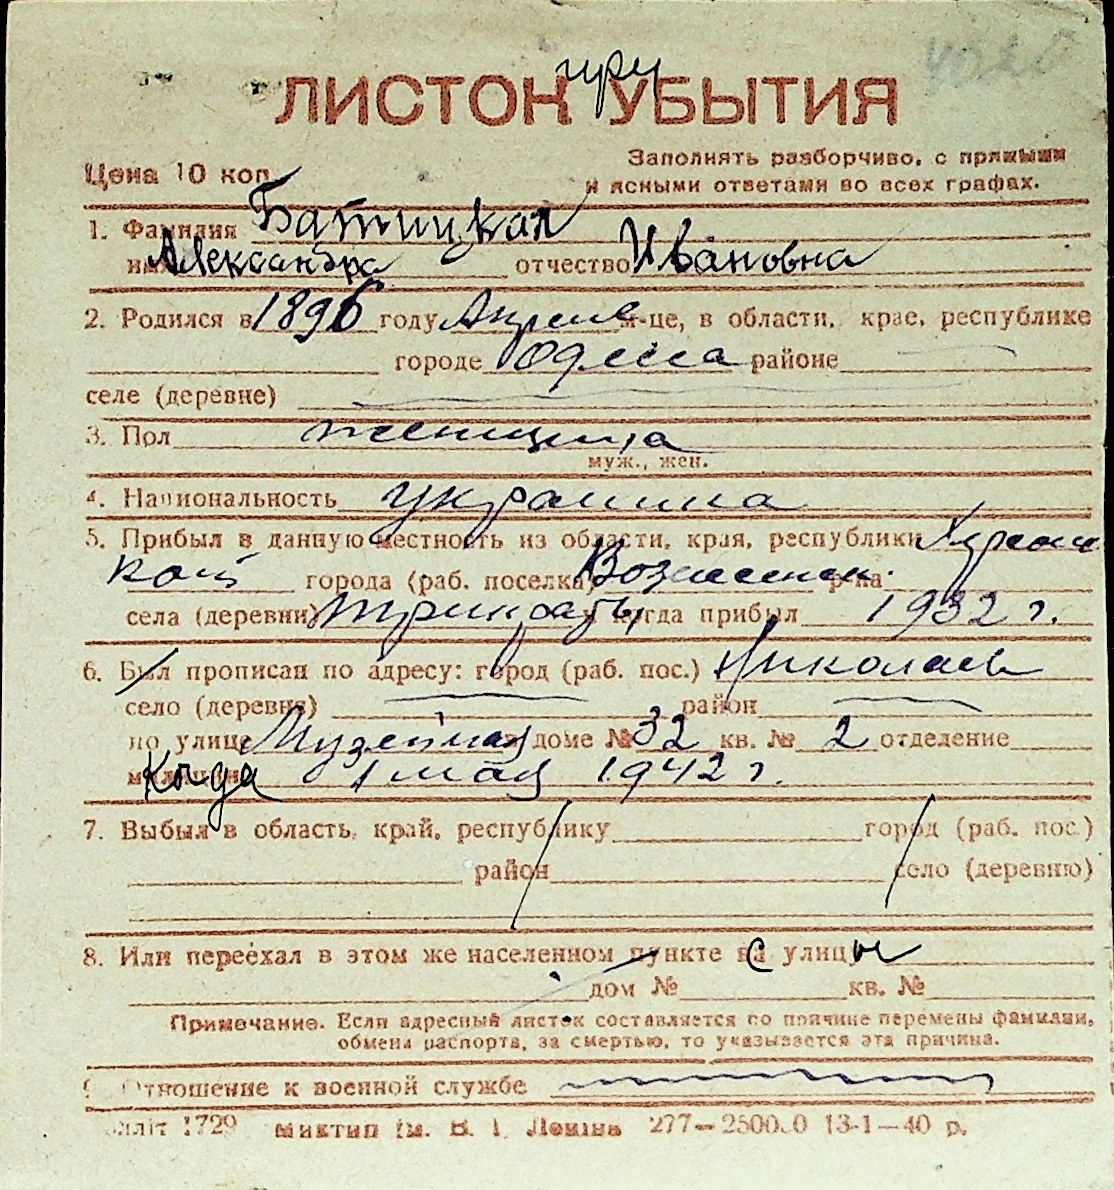 при
ЛИСТОК УБЫТИЯ
Цена 10 коп.
Заполнять разборчиво, с прямыми
и ясными ответами во всех графах.
1. Фамилия Батицкая
имя Александра отчество Ивановна
2. Родился в 1896 году Апреле м-це, в области, крае, республике
городе Одесса районе
селе (деревне)
3. Пол женщина
муж., жен.
4. Национальность украинка
5. Прибыл в данную местность из области, края, республики Херсон
ской города (раб. поселка) Вознесенск. р-на
села (деревни) Трикраты когда прибыл 1932 г.
6. Был прописан по адресу: город (раб. пос.) Николаев
село (деревня) район
по улице Музейная в доме № 32 кв. № 2 отделение
милиции Когда 1 мая 1942 г.
7. Выбыл в область, край, республику город (раб. пос.)
район село (деревню)
8. Или переехал в этом же населенном пункте с улицы
дом № кв. №
Примечание. Если адресный листок составляется по причине перемены фамилии,
обмена паспорта, за смертью, то указывается эта причина.
9. Отношение к военной службе
1729 ім. В. І. Леніна 13-1—40 р.